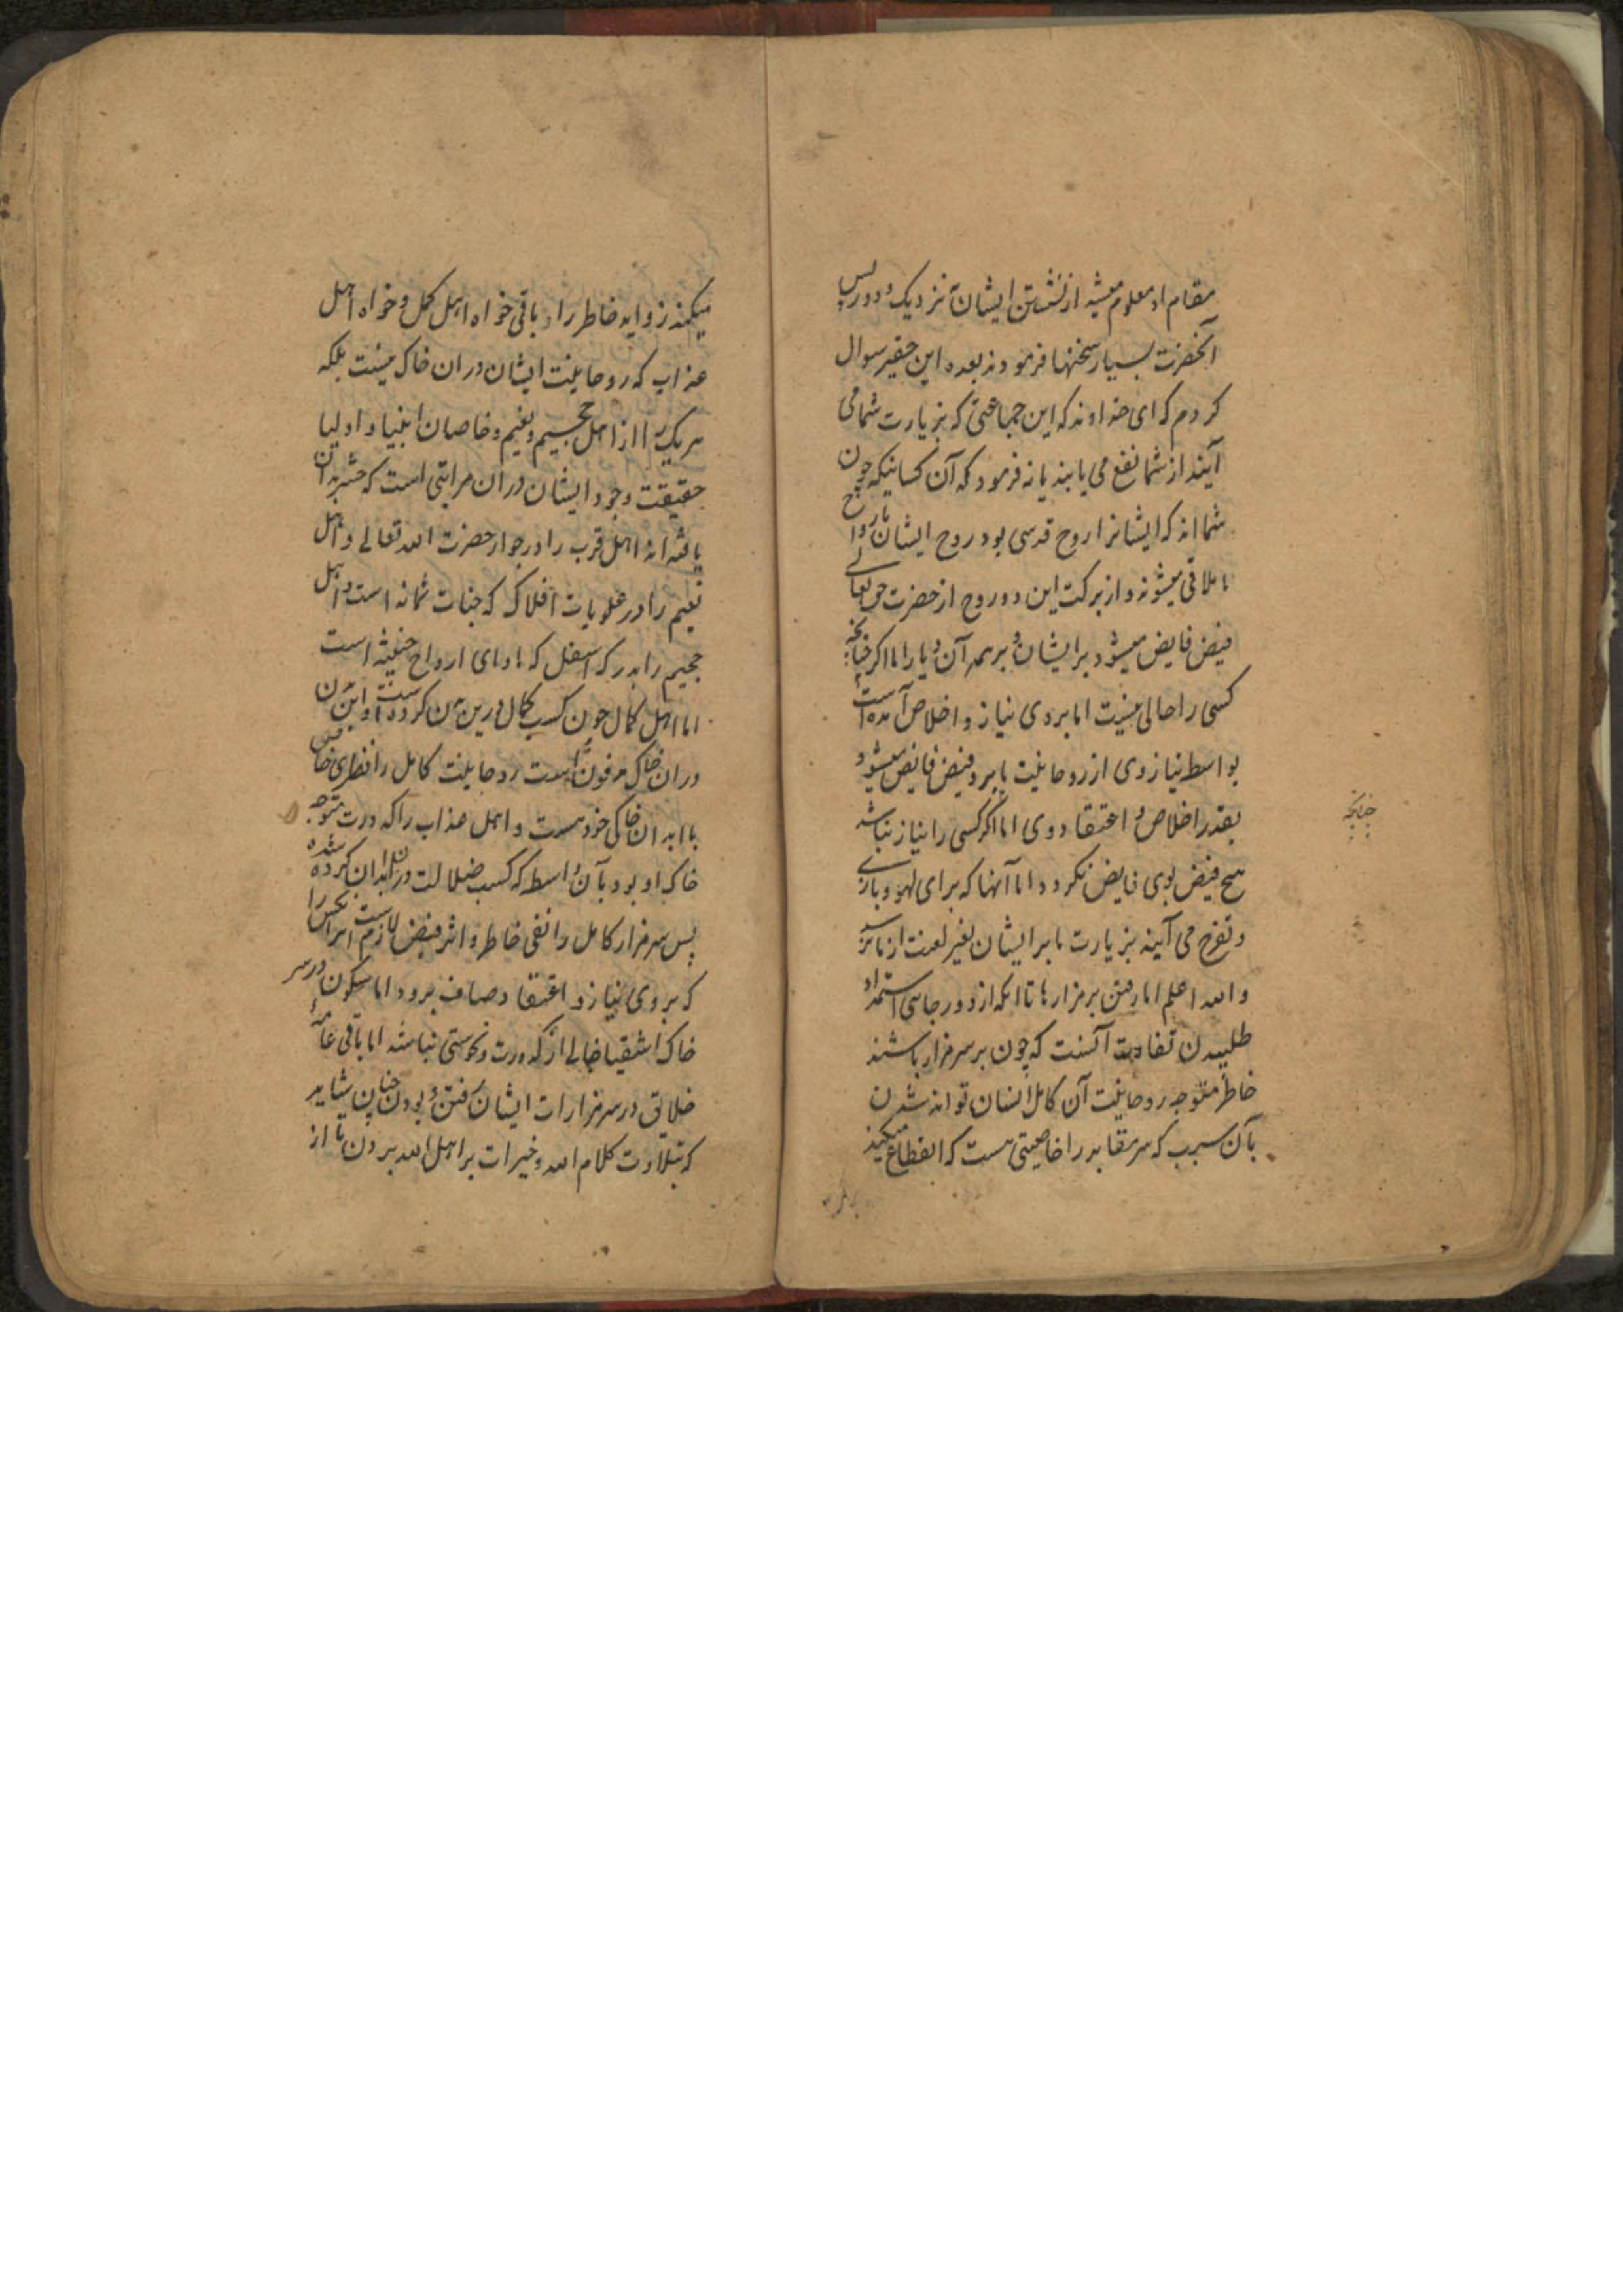 مقام او معلوم میشد از نشستن ایشان نزدیک و دور پس
آنحضرت بسیار سخنها فرمودند بعده این حقیر سوال
کردم که ای خداوند که این جماعتی که بزیارت شما می
آیند از شما نفع می یابند یا نه فرمود که آن کسانیکه چون
شما اند که ایشانرا روح قدسی بود روح ایشان با روح
ما ملاقی میشوند و از برکت این دو روح از حضرت حق تعالی
فیض فایض میشود بر ایشان و بر همه آن دیار اما اکر چنانچه
کسی را حالی نیست اما بروی نیاز و اخلاص آمده است
بواسطه نیاز وی از روحانیت ما برو فیض فایض میشود
بقدر اخلاص و اعتقاد وی اما اکر کسی را نیاز نباشد
هیچ فیض بوی فایض نکردد اما آنها که برای لهو و بازی
و تفرج می آیند بزیارت ما بر ایشان بغیر لعنت از ما نرسد
و الله اعلم اما رفتن بر مزارها تا انکه از دور جاسی استمداد
طلبیدن تفاوت آنست که چون بر سر مزار باشند
خاطر متوجه روحانیت آن کامل انسان تواند شدن
بآن سبب که سر مقابر را خاصیتی هست که انقطاع میکند
چنانچه
میکند زوایه خاطر را و باقی خواه اهل کمل و خواه اهل
عذاب که روحانیت ایشان دران خاک نیست بلکه
هریک را از اهل جحیم و نعیم و خاصان انبیا و اولیا
حقیقت وجود ایشان دران مراتبی است که حشر بدان
یافته اند اهل قرب را در جوار حضرت الله تعالی و اهل
نعیم را در علویات افلاک که جنات ثمانه است و اهل
جحیم را بدرکه اسفل که ماوای ارواح خبیثه است
اما اهل کمال چون کسب کمال درین بدن کرده است و این بدن
دران خاک مدفون است روحانیت کامل را نظری خاص
با ابدان خاکی خود هست و اهل عذاب را کدورت متوجه
خاک او بود بآن واسطه که کسب ضلالت در ان ابدان کرده شده
پس سر مزار کامل را نفی خاطر و اثر فیض لازم است انکس را
که بروی نیاز و اعتقاد صاف برود اما سکون در سر
خاک اشقیا خالی از کدورت و نحوستی نباشد اما باقی عامهٔ
خلایق در سر مزارات ایشان رفتن و بودن چنان شاید
که بتلاوت کلام الله و خیرات بر اهل الله بردن تا از